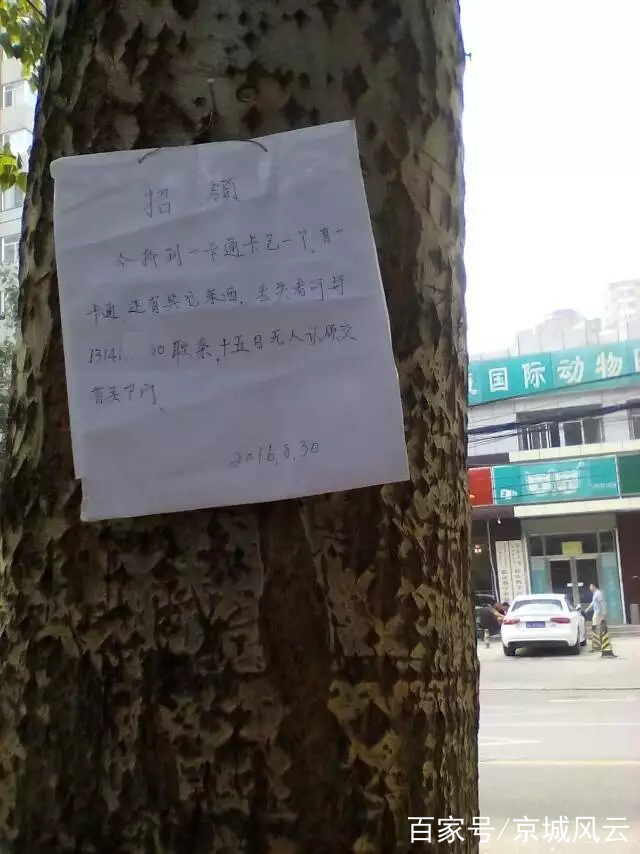 招 领
今拆到一卡通卡包一个,有一
卡通 还有其它东西. 丢失者可与
13141 30 联系.十五日无人认领交
有关部门.
2016.8.30
国际动物
百家号/京城风云